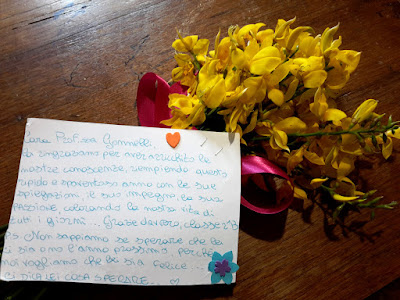 Cara Prof.ssa Gonnelli,
la ringraziamo per aver arricchito le
nostre conoscenze, riempiendo questo
rapido e spaventoso anno con le sue
spiegazioni, il suo impegno, la sua
passione colorando la nostra vita di
tutti i giorni... Grazie davvero, classe 2°B
P.S. Non sappiamo se sperare che la
ci sia o no l'anno prossimo, perchè
noi vogliamo che lei sia felice...
CI DICA LEI COSA SPERARE...